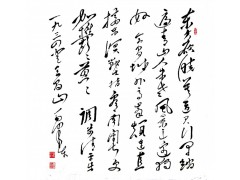 东方欲晓莫道君行早踏
遍青山人未老风景这边独
好会昌城外高峰颠连直
接东溟战士指看南粤更
加郁郁葱葱 调寄清平乐
一九三四 登会昌山 毛泽东